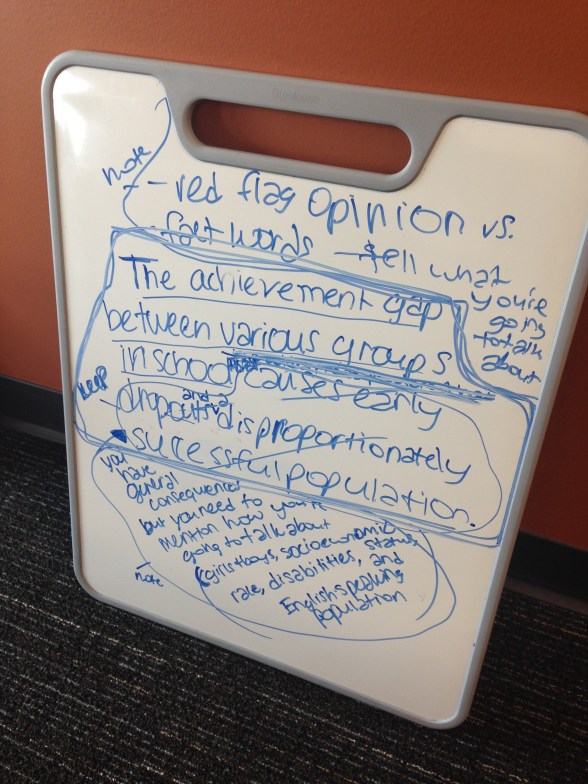 note
- red flag Opinion vs.
fact words - tell what
you're
going
to talk
about
The achievement gap
between various groups
in school causes early
dropouts and a disproportionately
sucessful population.
keep
you
have
general
consequences
but you need to
mention how you're
going to talk about
(girls+boys, socioeconomic status,
race, disabilities, and
English speaking
population
note